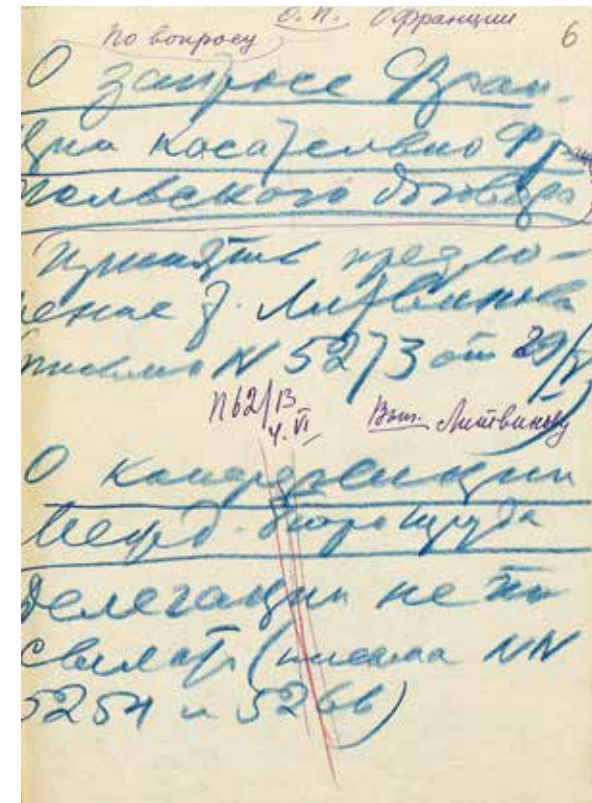 О.П. О Франции
6
По вопросу
О запросе Фран-
ции касательно Фр
польского договора
Принять предло-
жение т. Литвинова
письмо N 5273 от 29/V
П62/13
4.VI
Вып. Литвинову
О конференции
Межд. бюро труда
Делегации не по
сылать (письма NN
5254 и 5266)